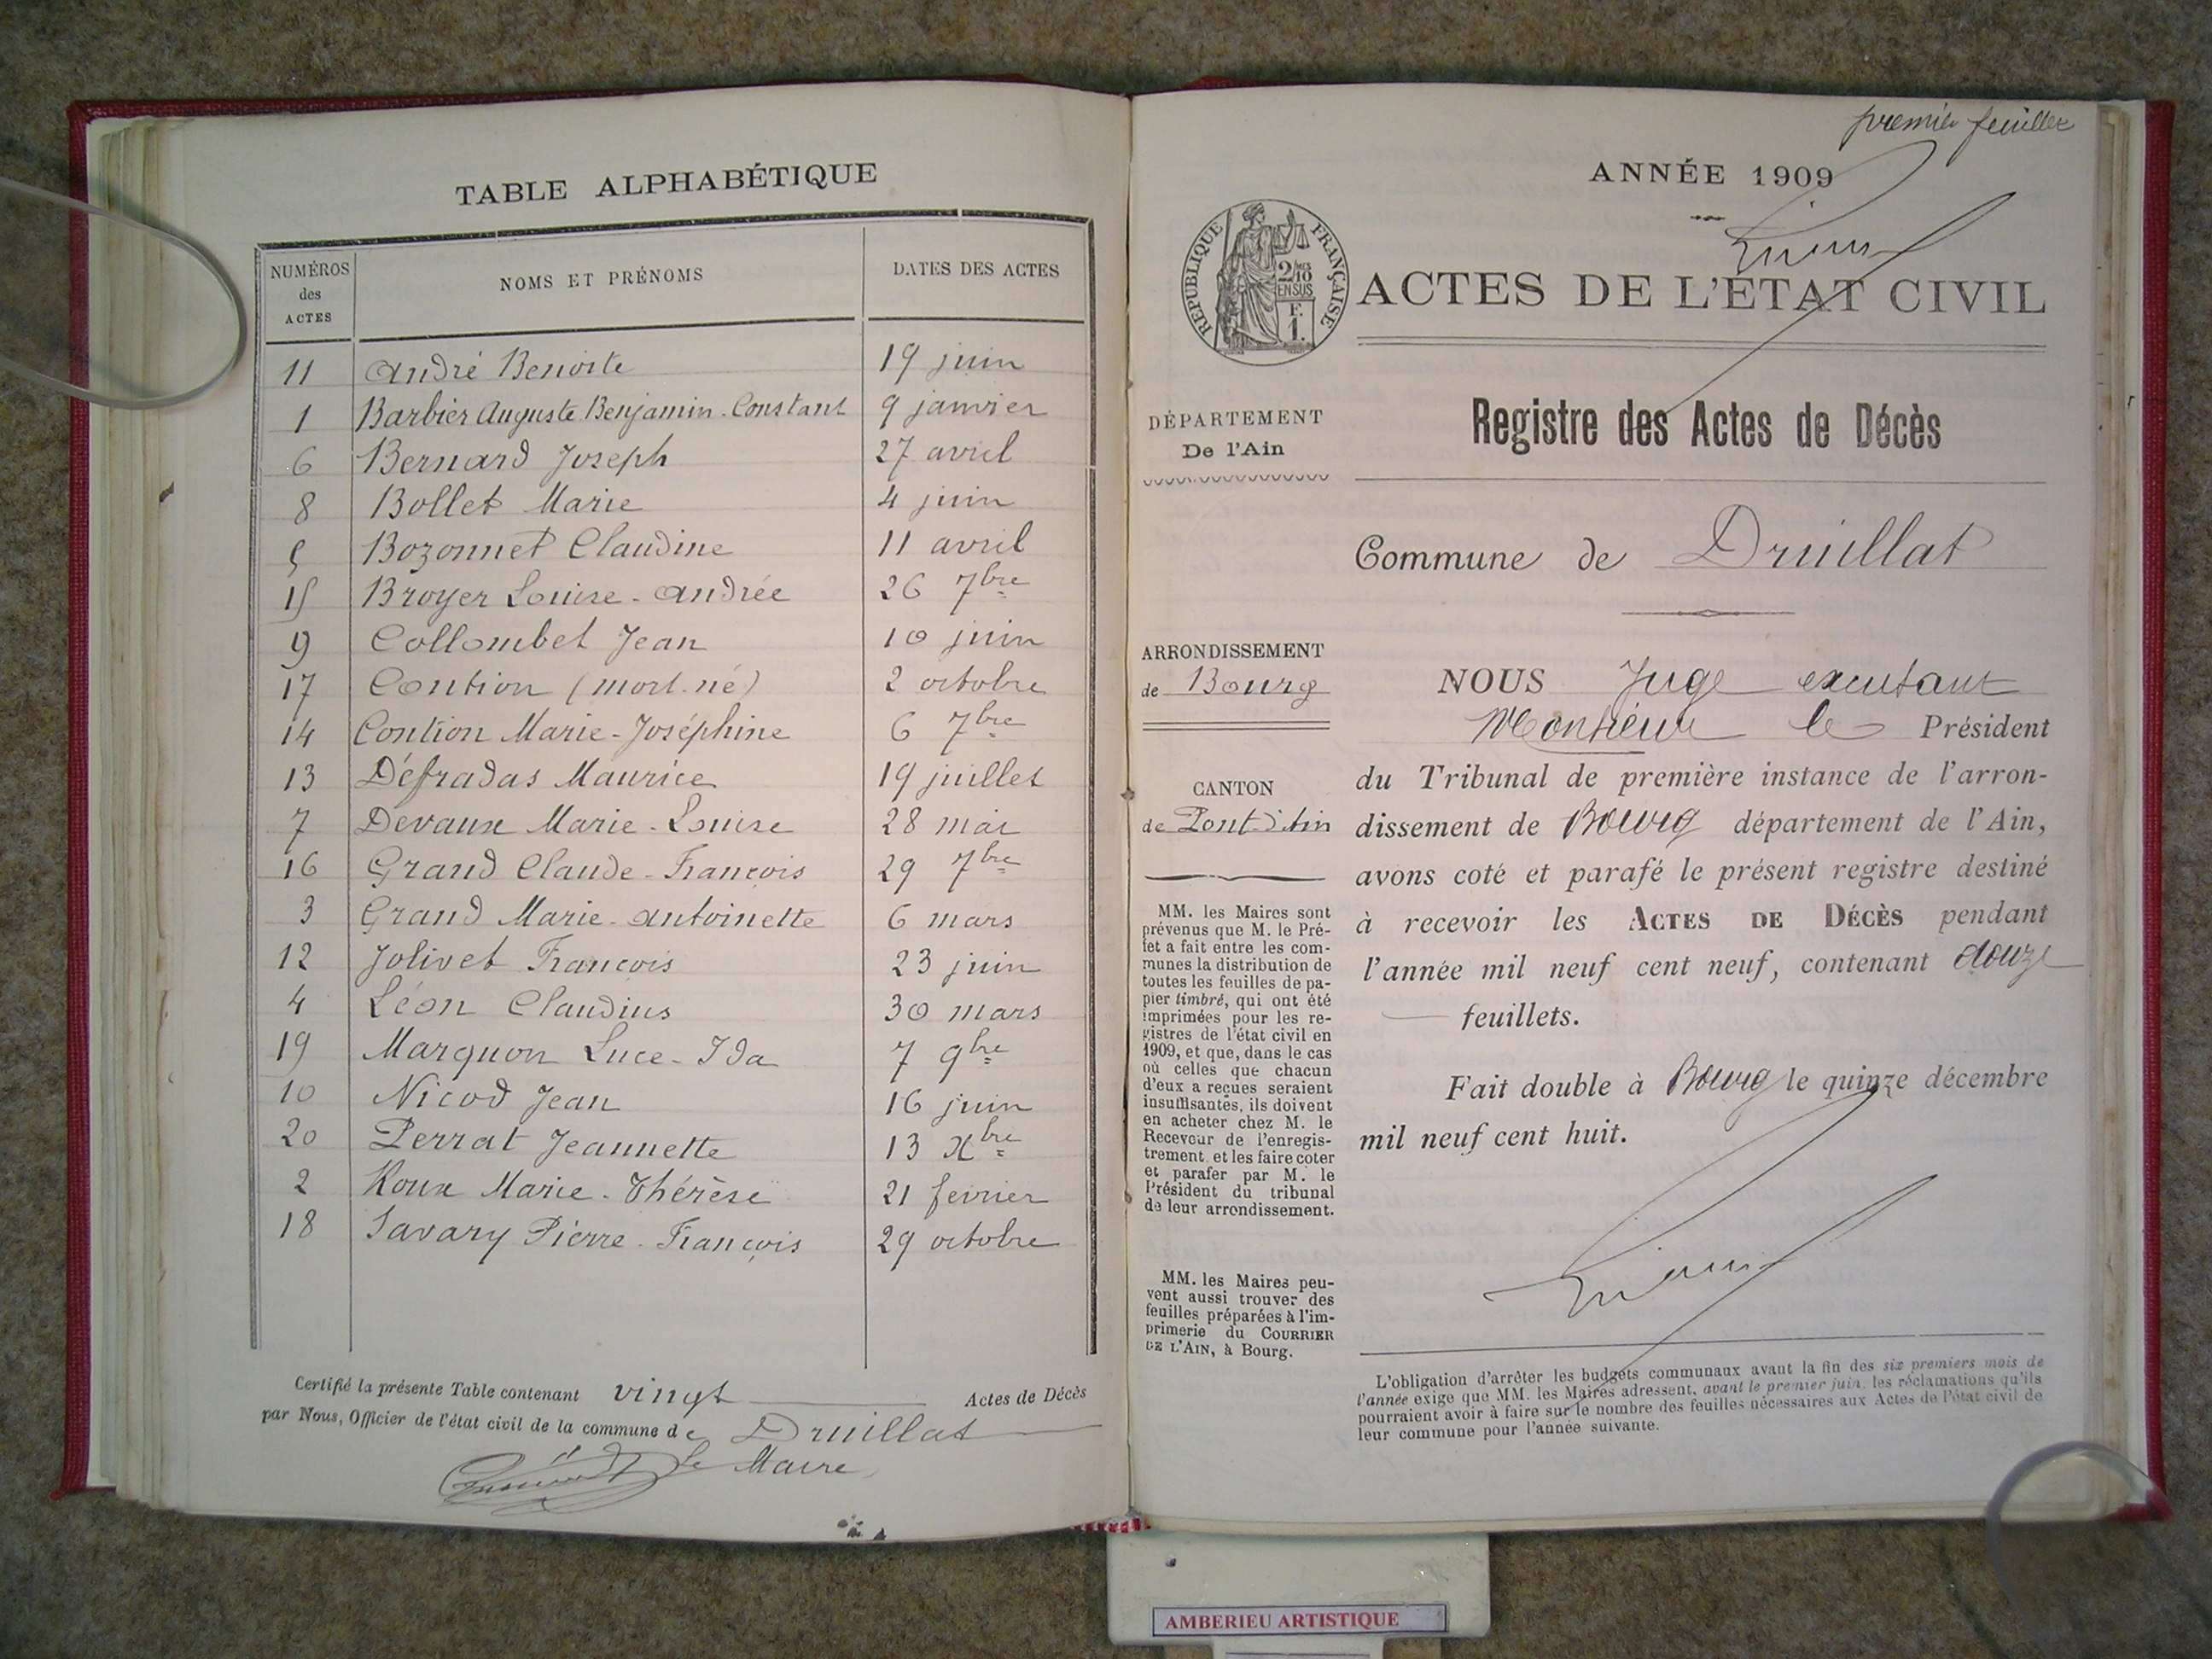 TABLE ALPHABÉTIQUE
NUMÉROS des ACTES NOMS ET PRÉNOMS DATES DES ACTES
11 André Benoite 19 juin
1 Barbier Auguste Benjamin-Constant 9 janvier
6 Bernard Joseph 27 avril
8 Bollet Marie 4 juin
5 Bozonnet Claudine 11 avril
15 Broyer Louise-Andrée 26 7bre
9 Collombet Jean 10 juin
17 Contion (mort-né) 2 octobre
14 Contion Marie-Joséphine 6 7bre
13 Défradas Maurice 19 juillet
7 Devaux Marie-Louise 28 mai
16 Grand Claude-François 29 7bre
3 Grand Marie-Antoinette 6 mars
12 Jolivet François 23 juin
4 Léon Claudius 30 mars
19 Marquon Luce-Ida 7 9bre
10 Nicod Jean 16 juin
20 Perrat Jeannette 13 Xbre
2 Roux Marie-Thérèse 21 fevrier
18 Savary Pierre-François 29 octobre
Certifié la présente Table contenant vingt Actes de Décès
par Nous, Officier de l'état civil de la commune de Druillat
Le Maire
premier feuillet
ANNÉE 1909
RÉPUBLIQUE FRANÇAISE
2/10
EN SUS
F.
1.
ACTES DE L'ÉTAT CIVIL
Registre des Actes de Décès
DÉPARTEMENT
De l'Ain
Commune de Druillat
ARRONDISSEMENT
de Bourg
CANTON
de Pont d'Ain
MM. les Maires sont
prévenus que M. le Pré-
fet a fait entre les com-
munes la distribution de
toutes les feuilles de pa-
pier timbré, qui ont été
imprimées pour les re-
gistres de l'état civil en
1909, et que, dans le cas
où celles que chacun
d'eux a reçues seraient
insuffisantes, ils doivent
en acheter chez M. le
Receveur de l'enregis-
trement et les faire coter
et parafer par M. le
Président du tribunal
de leur arrondissement.
MM. les Maires peu-
vent aussi trouver des
feuilles préparées à l'im-
primerie du COURRIER
DE L'AIN, à Bourg.
NOUS Juge
Monsieur le Président
du Tribunal de première instance de l'arron-
dissement de Bourg département de l'Ain,
avons coté et parafé le présent registre destiné
à recevoir les ACTES DE DÉCÈS pendant
l'année mil neuf cent neuf, contenant douze
feuillets.
Fait double à Bourg le quinze décembre
mil neuf cent huit.
L'obligation d'arrêter les budgets communaux avant la fin des six premiers mois de
l'année exige que MM. les Maires adressent, avant le premier juin, les réclamations qu'ils
pourraient avoir à faire sur le nombre des feuilles nécessaires aux Actes de l'état civil de
leur commune pour l'année suivante.
AMBERIEU ARTISTIQUE